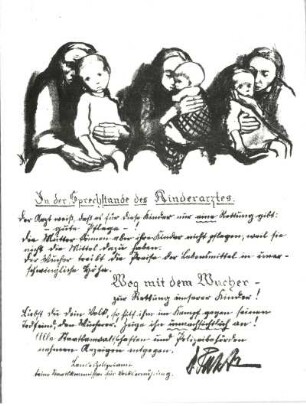 In der Sprechstunde des Kinderarztes.
Der Arzt weiß, daß es für diese Kinder nur eine Rettung gibt:
- gute Pflege - !
Die Mütter können aber ihre Kinder nicht pflegen, weil sie
nicht die Mittel dazu haben.
Der Wucher treibt die Preise der Lebensmittel in uner-
schwingliche Höhe.
Weg mit dem Wucher -
zur Rettung unserer Kinder!
Liebst du dein Volk, so hilf ihm im Kampf gegen seinen
Todfeind, den Wucherer. Zeige ihn unnachsichtlich an!
Alle Staatsanwaltschaften und Polizeibehörden
nehmen Anzeigen entgegen.
Landespolizeiamt
beim Staatskommissar für Volksernährung.